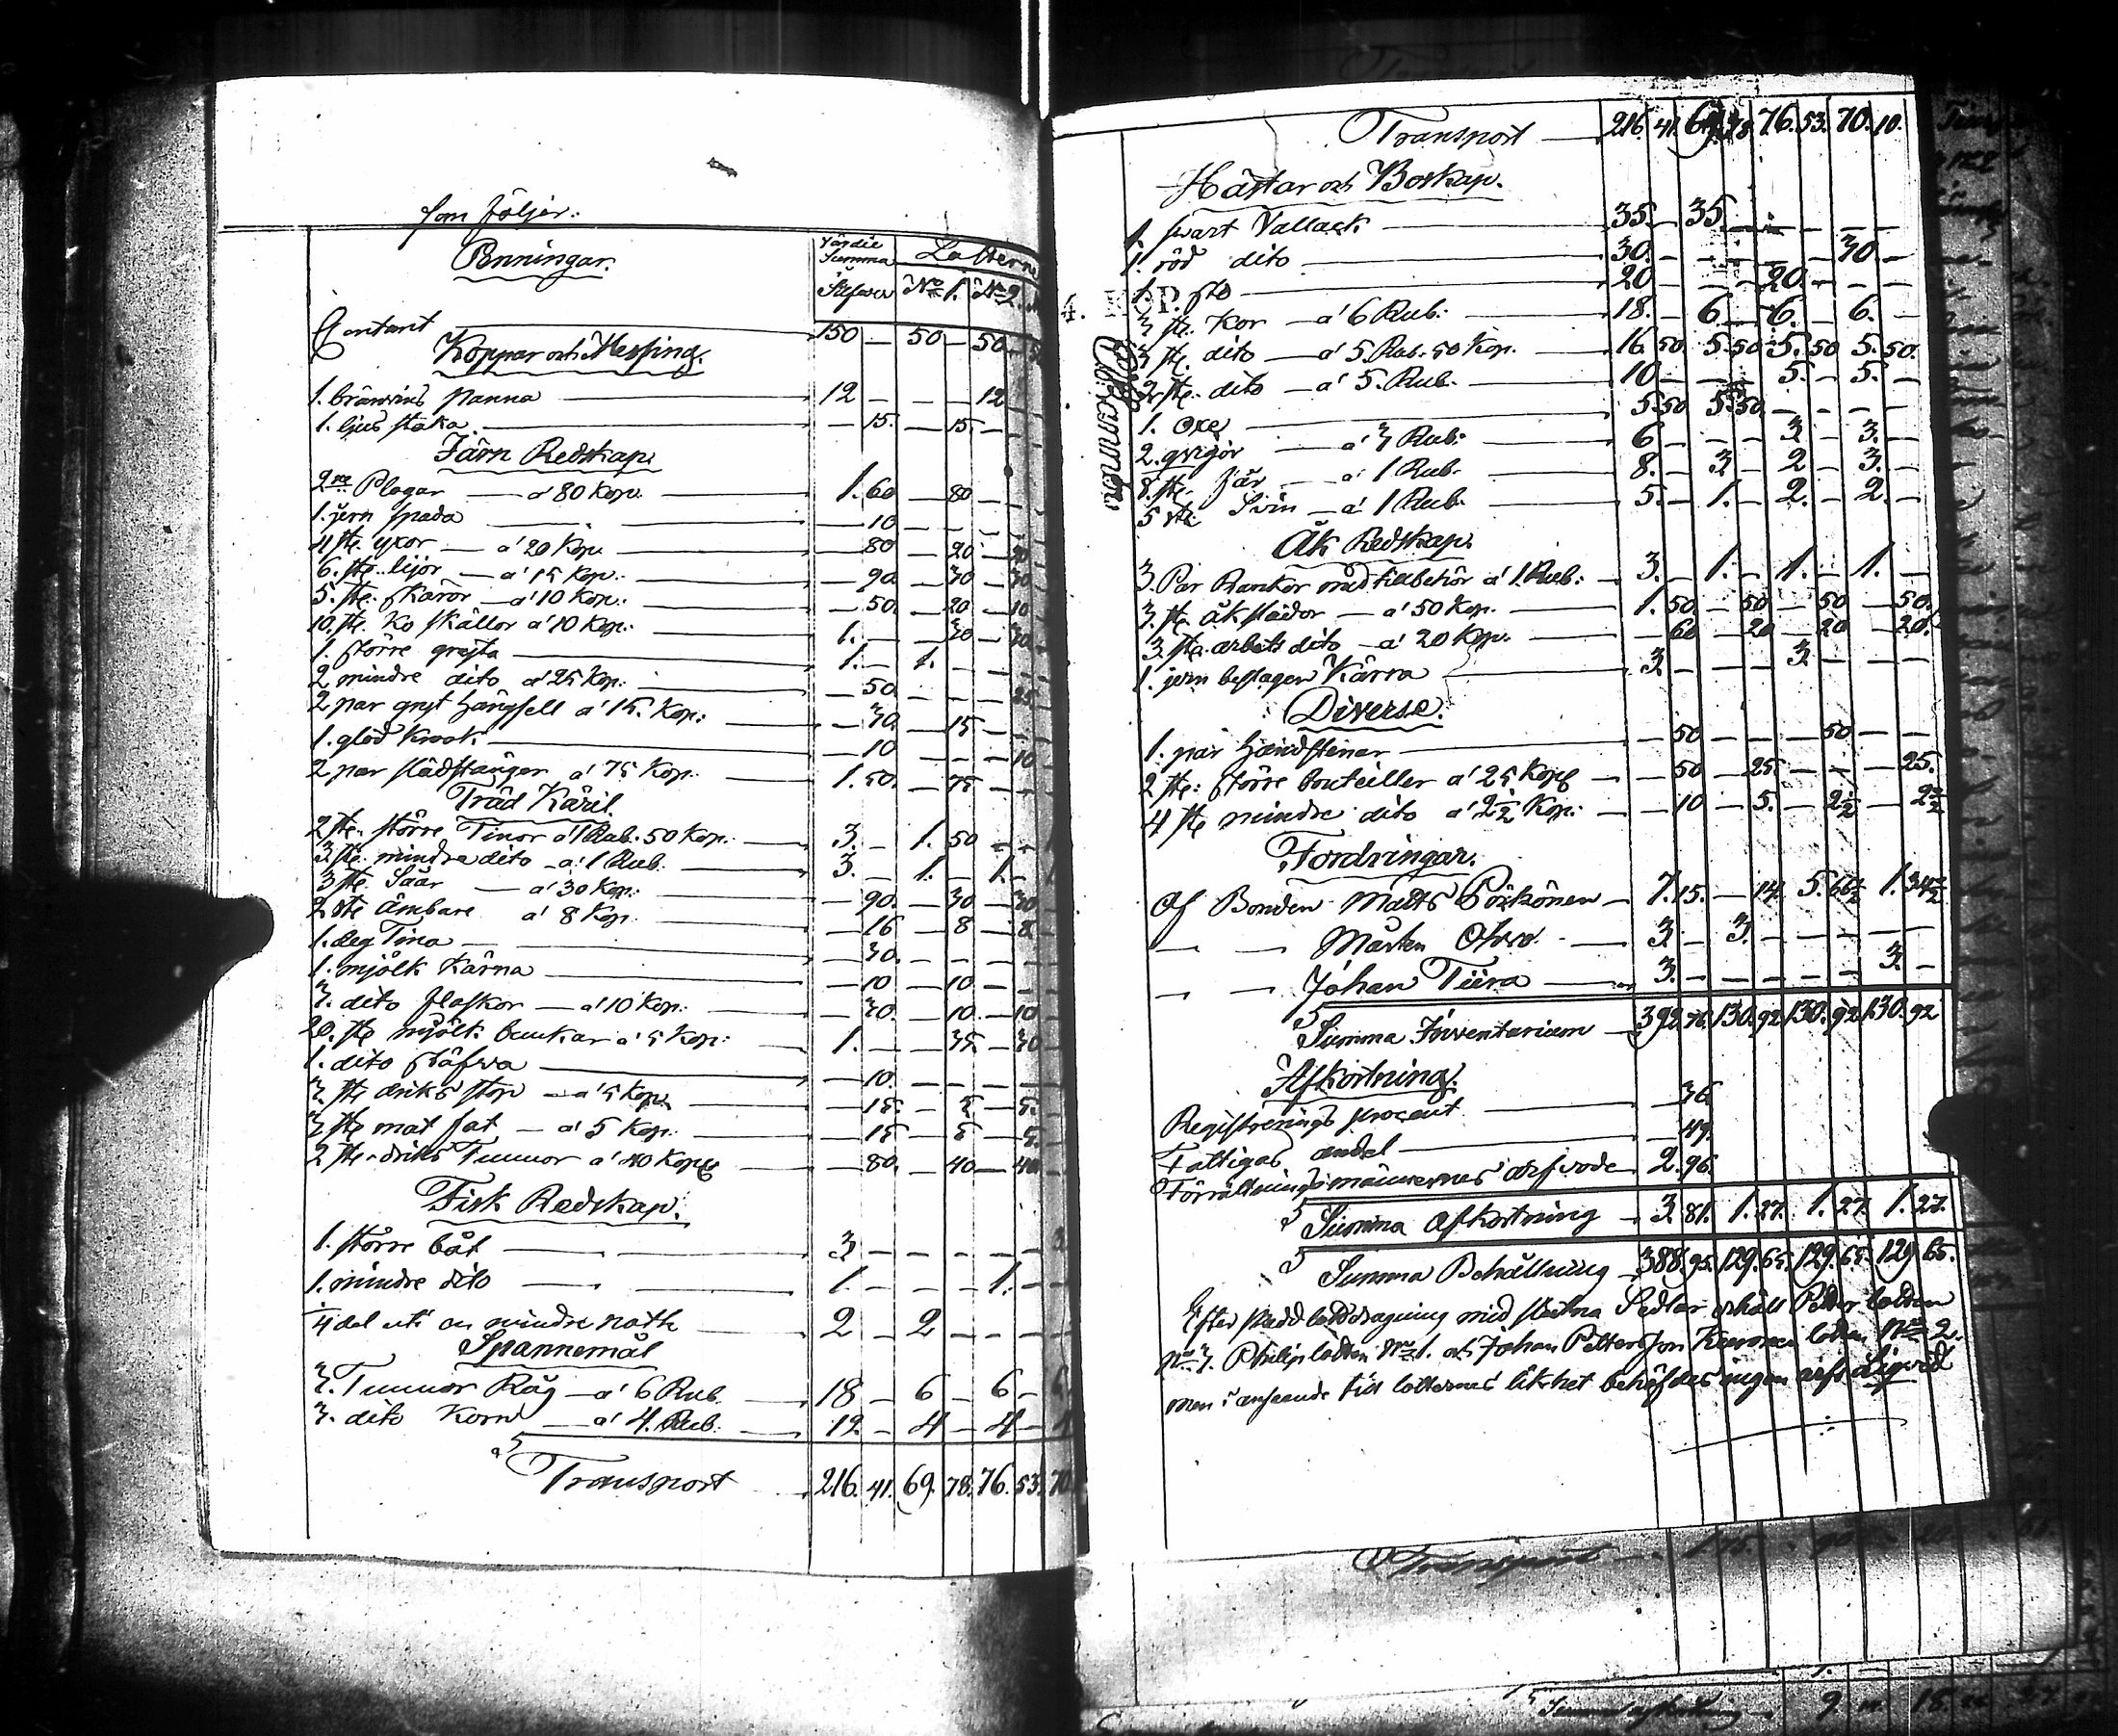 som följer:
Penningar.
Värdie Summa Silfver Lotterne No 1. No 2.
Contant 150 — 50 — 50 —
Koppar och Messing.
1. bränvins panna 12 — — — 12
1. ljus staka — 15. — 15. —
Järn Redskap.
2ne Plogar — a' 80 Kop. 1. 60 — 80 — —
1. jern spada — 10 — — —
4 ste. yxor — a' 20 Kop. — 80 — 20 — 20
6. ste. lijor — a' 15 Kop. — 90 — 30 — 30
5. ste. skäror — a' 10 Kop. — 50. — 20 — 10
10. ste. Ko skällor a' 10 Kop. 1. — — 30 — 30
1. större gryta 1. — 1. — — —
2 mindre dito a' 25 Kop. — 50. — — — 25
2 par gryt hängsell a' 15. Kop. — 30. — 15 — —
1. glöd Krok — 10 — — — 10
2 par slädstänger a' 75 Kop. 1. 50. — 75 — —
Träd Käril
2 ste. större Tinor a' 1 Rub. 50 Kop. 3. — 1. 50 — —
3 ste. mindre dito — a' 1 Rub. 3. — 1. — 1. —
3 ste. Såår — a' 30 Kop. — 90. — 30 — 30
2 ste ämbare a' 8 Kop. — 16 — 8 — 8
1. deg Tina — 30. — — —
1. mjölk Kärna — 10 — 10 — —
3. dito flaskor — a' 10 Kop. — 30. — 10. — 10
20. ste mjölk bunkar a' 5 Kop. 1. — — 35. — 30
1. dito stäfva — 10. — — —
3 ste driks stop — a' 5 Kop. — 15. — 5 — 5.
3 ste mat fat — a' 5 Kop. — 15 — 5 — 5.
2 ste driks Tunnor a' 40 Kop. — 80. — 40 — 40
Fisk Redskap.
1. större båt 3 — — — — — 3
1. mindre dito 1. — — — 1. —
1/4 del uti en mindre noth 2 — 2 — — —
Spannemål
3. Tunnor Råg — a' 6 Rub. 18 — 6 — 6 — 6
3. dito Korn — a' 4. Rub. 12 — 4 — 4 — 4
Transport 216. 41. 69. 78. 76. 53. 70
Transport 216. 41. 69. 78. 76. 53. 70. 10.
Hästar och Boskap.
1. svart Vallack 35. — 35. — — — — —
1. röd dito 30. — — — — — 30 —
1. sto 20 — — — 20. — — —
3 ste. Kor — a' 6 Rub. 18. — 6. — 6. — 6. —
3 ste. dito — a' 5. Rub. 50 Kop. 16. 50. 5. 50 5. 50 5. 50.
2 ste. dito — a' 5. Rub. 10 — — — 5. — 5. —
1. Oxe 5. 50 5. 50. — — — —
2. qvigor — a' 3 Rub. 6 — — — 3 — 3. —
8. ste. får — a' 1 Rub. 8. — 3. — 2 — 3. —
5 ste. Svin — a' 1 Rub. 5. — 1. — 2. — 2. —
Åk Redskap.
3. Par Rankor med tillbehör a' 1. Rub. 3. — 1. — 1. — 1. —
3. ste. åk slädor — a' 50 Kop. 1. 50. — 50 — 50 — 50.
3. ste. arbets dito — a' 20 Kop. — 60 — 20 — 20 — 20.
1. jern beslagen Kärra 3. — — — 3 — — —
Diverse.
1. par handstenar — 50 — — — 50 — —
2 ste. större bouteiller a' 25 Kop — 50 — 25 — — — 25.
4 ste mindre dito a' 2 1/2 Kop. — 10 — 5. — 2 1/2 — 2 1/2
Fordringar.
Af Bonden Matts Pöxkönen — 7. 15. — 14. 5. 66 1/2 1. 34 1/2
— — Mårten — 3. — 3. — — — — —
— — Johan Tiira — 3. — — — — — 3. —
Summa Inventarium 392. 76. 130. 92 130. 92 130. 92
Afkortning.
Registrerings procent — 36.
Fattigas andel — 49.
Förrättningsmännernes arfvode 2. 96.
Summa Afkortning 3. 81. 1. 27. 1. 27. 1. 27.
Summa Behållning 388. 95. 129. 65. 129. 65. 129. 65.
Efter skedd lottdragning med slutna Sedlar erhöll Petter lotten
No 3. Philip lotten No 1. och Johan Pettersson lotten No 2.
men i anseende till lotternes likhet behöfdes ingen arfs Liqvid
Transport